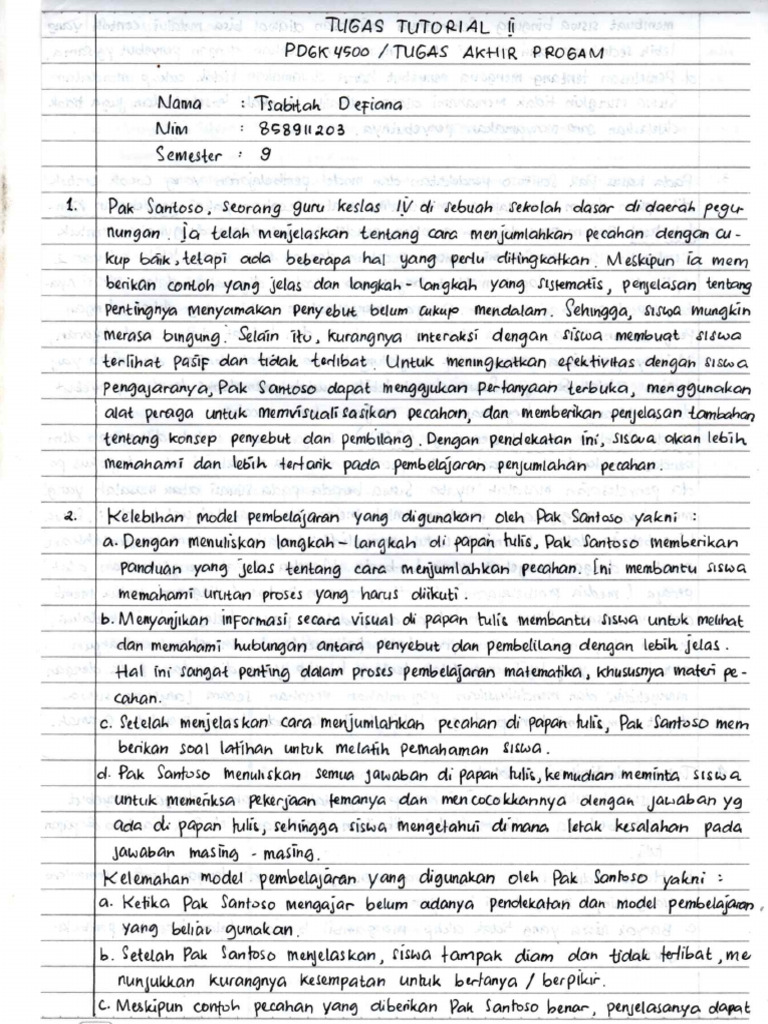 TUGAS TUTORIAL II
PDGK 4500 / TUGAS AKHIR PROGAM
Nama : Tsabitah Defiana
Nim : 858911203
Semester : 9
1. Pak Santoso, seorang guru keslas IV di sebuah sekolah dasar di daerah pegu-
nungan. Ia telah menjelaskan tentang cara menjumlahkan pecahan dengan cu-
kup baik, tetapi ada beberapa hal yang perlu ditingkatkan. Meskipun ia mem
berikan contoh yang jelas dan langkah-langkah yang sistematis, penjelasan tentang
pentingnya menyamakan penyebut belum cukup mendalam. Sehingga, siswa mungkin
merasa bingung. Selain itu, kurangnya interaksi dengan siswa membuat siswa
terlihat pasif dan tidak terlibat. Untuk meningkatkan efektivitas dengan siswa
Pengajaranya, Pak Santoso dapat mengajukan pertanyaan terbuka, menggunakan
alat peraga untuk memvisualisasikan pecahan, dan memberikan penjelasan tambahan
tentang konsep penyebut dan pembilang. Dengan pendekatan ini, siswa akan lebih
memahami dan lebih tertarik pada pembelajaran penjumlahan pecahan.
2. Kelebihan model pembelajaran yang digunakan oleh Pak Santoso yakni :
a. Dengan menuliskan langkah-langkah di papan tulis, Pak Santoso memberikan
panduan yang jelas tentang cara menjumlahkan pecahan. Ini membantu siswa
memahami urutan proses yang harus diikuti.
b. Menyanjikan informasi secara visual di papan tulis membantu siswa untuk melihat
dan memahami hubungan antara penyebut dan pembelilang dengan lebih jelas.
Hal ini sangat penting dalam proses pembelajaran matematika, khususnya materi pe-
cahan.
c. Setelah menjelaskan cara menjumlahkan pecahan di papan tulis, Pak Santoso mem
berikan soal latihan untuk melatih pemahaman siswa.
d. Pak Santoso menuliskan semua jawaban di papan tulis, kemudian meminta siswa
untuk memeriksa pekerjaan temanya dan mencocokkannya dengan jawaban yg
ada di papan tulis, sehingga siswa mengetahui dimana letak kesalahan pada
jawaban masing-masing.
Kelemahan model pembelajaran yang digunakan oleh Pak Santoso yakni :
a. Ketika Pak Santoso mengajar belum adanya pendekatan dan model pembelajaran
yang beliau gunakan.
b. Setelah Pak Santoso menjelaskan, siswa tampak diam dan tidak terlibat, me
nunjukkan kurangnya kesempatan untuk bertanya / berpikir.
c. Meskipun contoh pecahan yang diberikan Pak Santoso benar, penjelasanya dapat